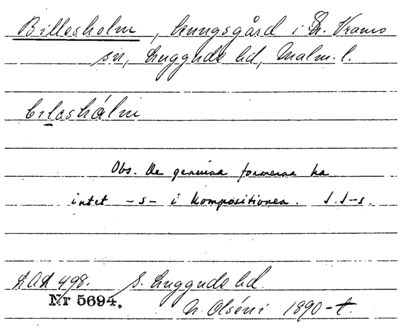 Billesholm, kungsgård i N. Vram
sn, Luggude hd, Malm. l.
bılashálm
Obs. De genuina formerna ha
intet -s- i kompositionen. J. S-s.
LAL 498. S. Luggude hd.
Nr 5694.
N. Olséni 1890-t.